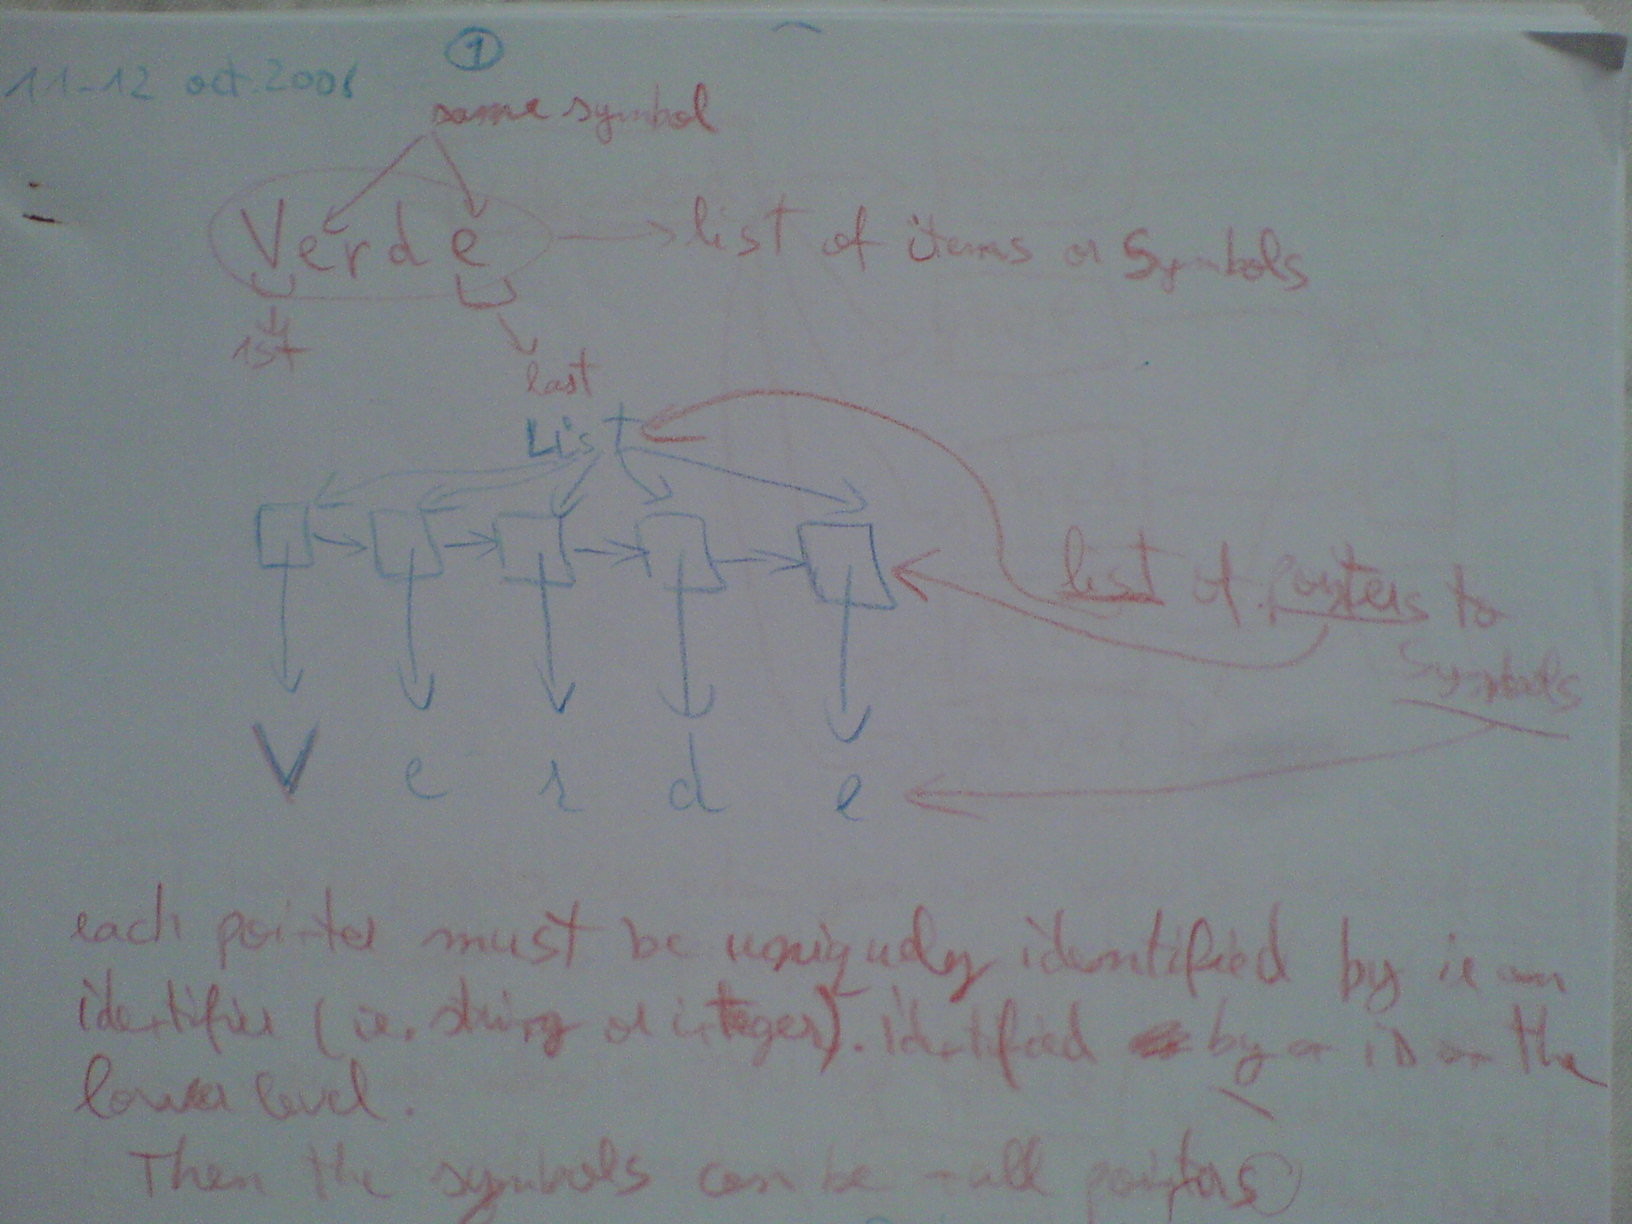 1
11-12 oct. 2008
same symbol
Verde
list of items or Symbols
1st
last
List
list of pointers to
Symbols
V e r d e
each pointer must be uniquely identified by ie an
identifier (ie. string or integer). identified by on the
lower level.
Then the symbols can be null pointers